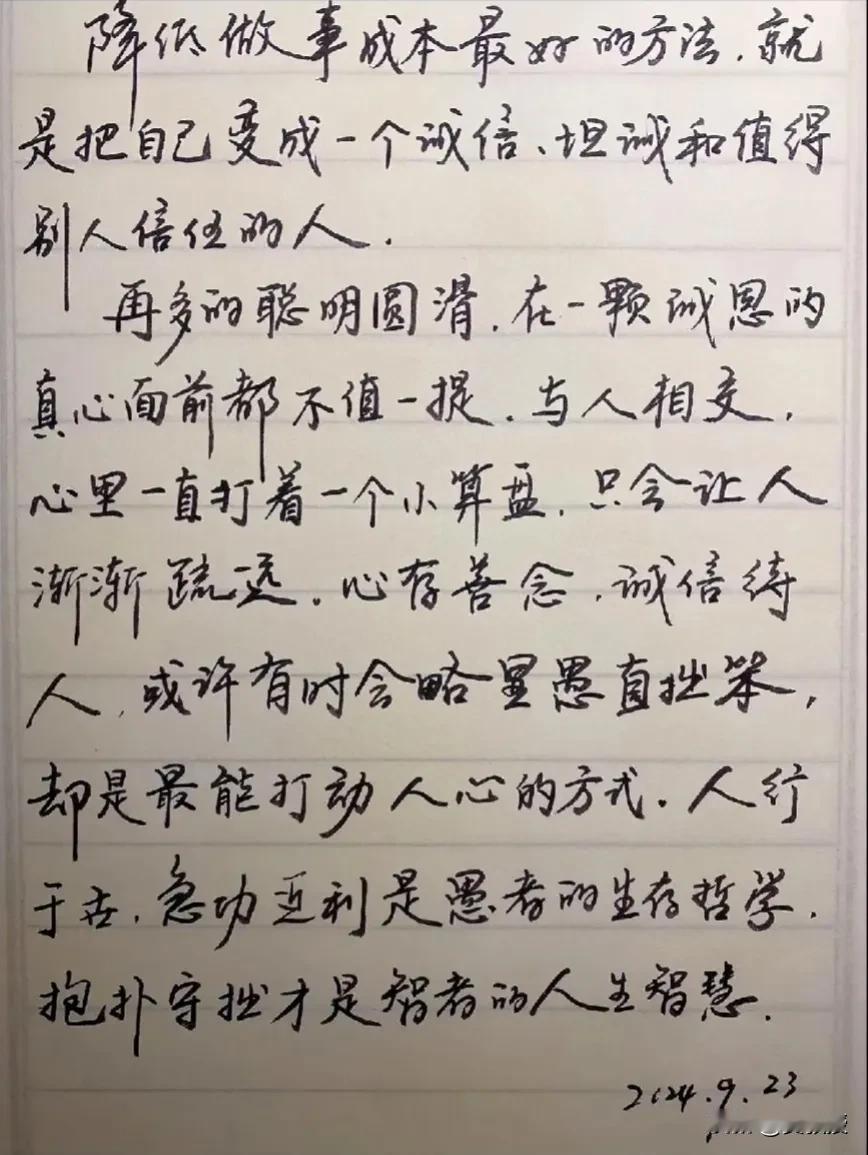 降低做事成本最好的方法，就
是把自己变成一个诚信、坦诚和值得
别人信任的人．
再多的聪明圆滑，在一颗诚恳的
真心面前都不值一提．与人相交，
心里一直打着一个小算盘，只会让人
渐渐疏远．心存善念，诚信待
人，或许有时会略显愚直拙笨，
却是最能打动人心的方式．人行
于世，急功近利是愚者的生存哲学．
抱朴守拙才是智者的人生智慧．
2024.9.23